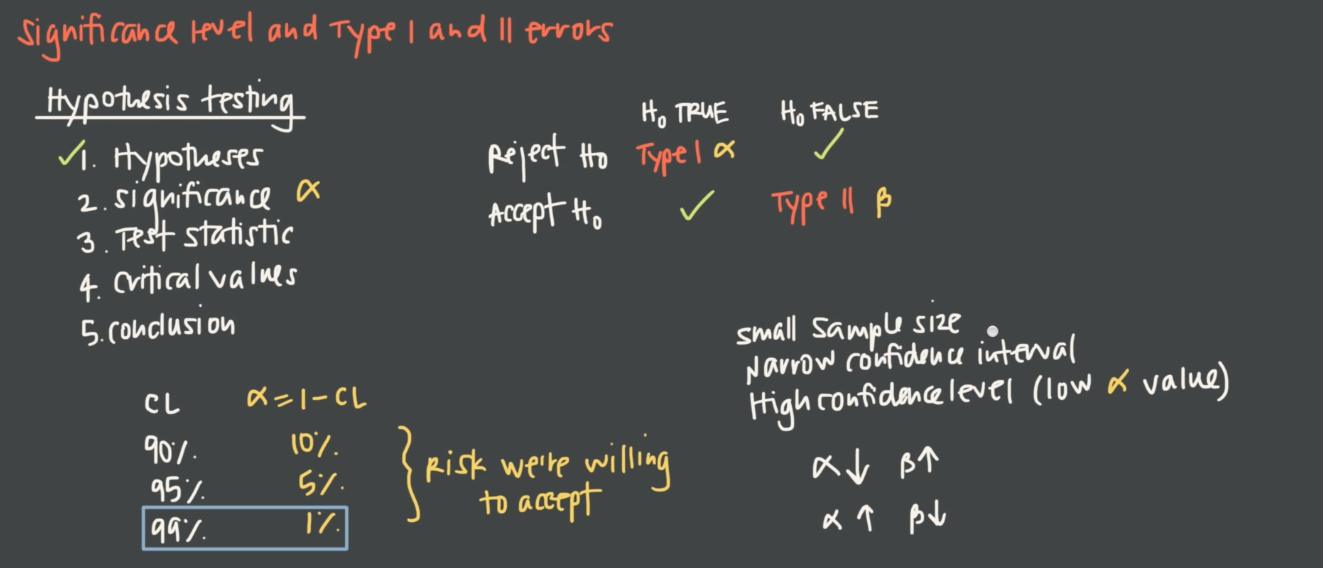 Significance level and Type I and II errors
Hypothesis testing
✓1. Hypotheses
2. significance α
3. Test statistic
4. critical values
5. conclusion
H₀ TRUE H₀ FALSE
Reject H₀ Type I α ✓
Accept H₀ ✓ Type II β
CL α = 1 - CL
90% 10%
95% 5%
99% 1%
Risk we're willing
to accept
small sample size
Narrow confidence interval
High confidence level (low α value)
α↓ β↑
α↑ β↓